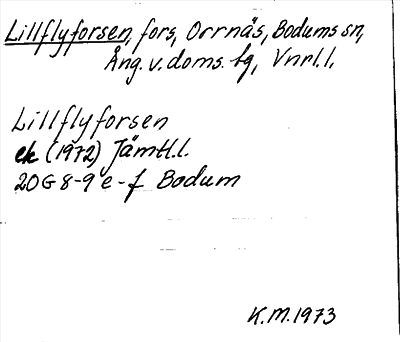 Lillflyforsen, fors, Orrnäs, Bodums sn,
Ång. v. doms. tg, Vnrl.l.
Lillflyforsen
ek (1972) Jämtl.l.
20G 8-9 e-f Bodum
K.M. 1973